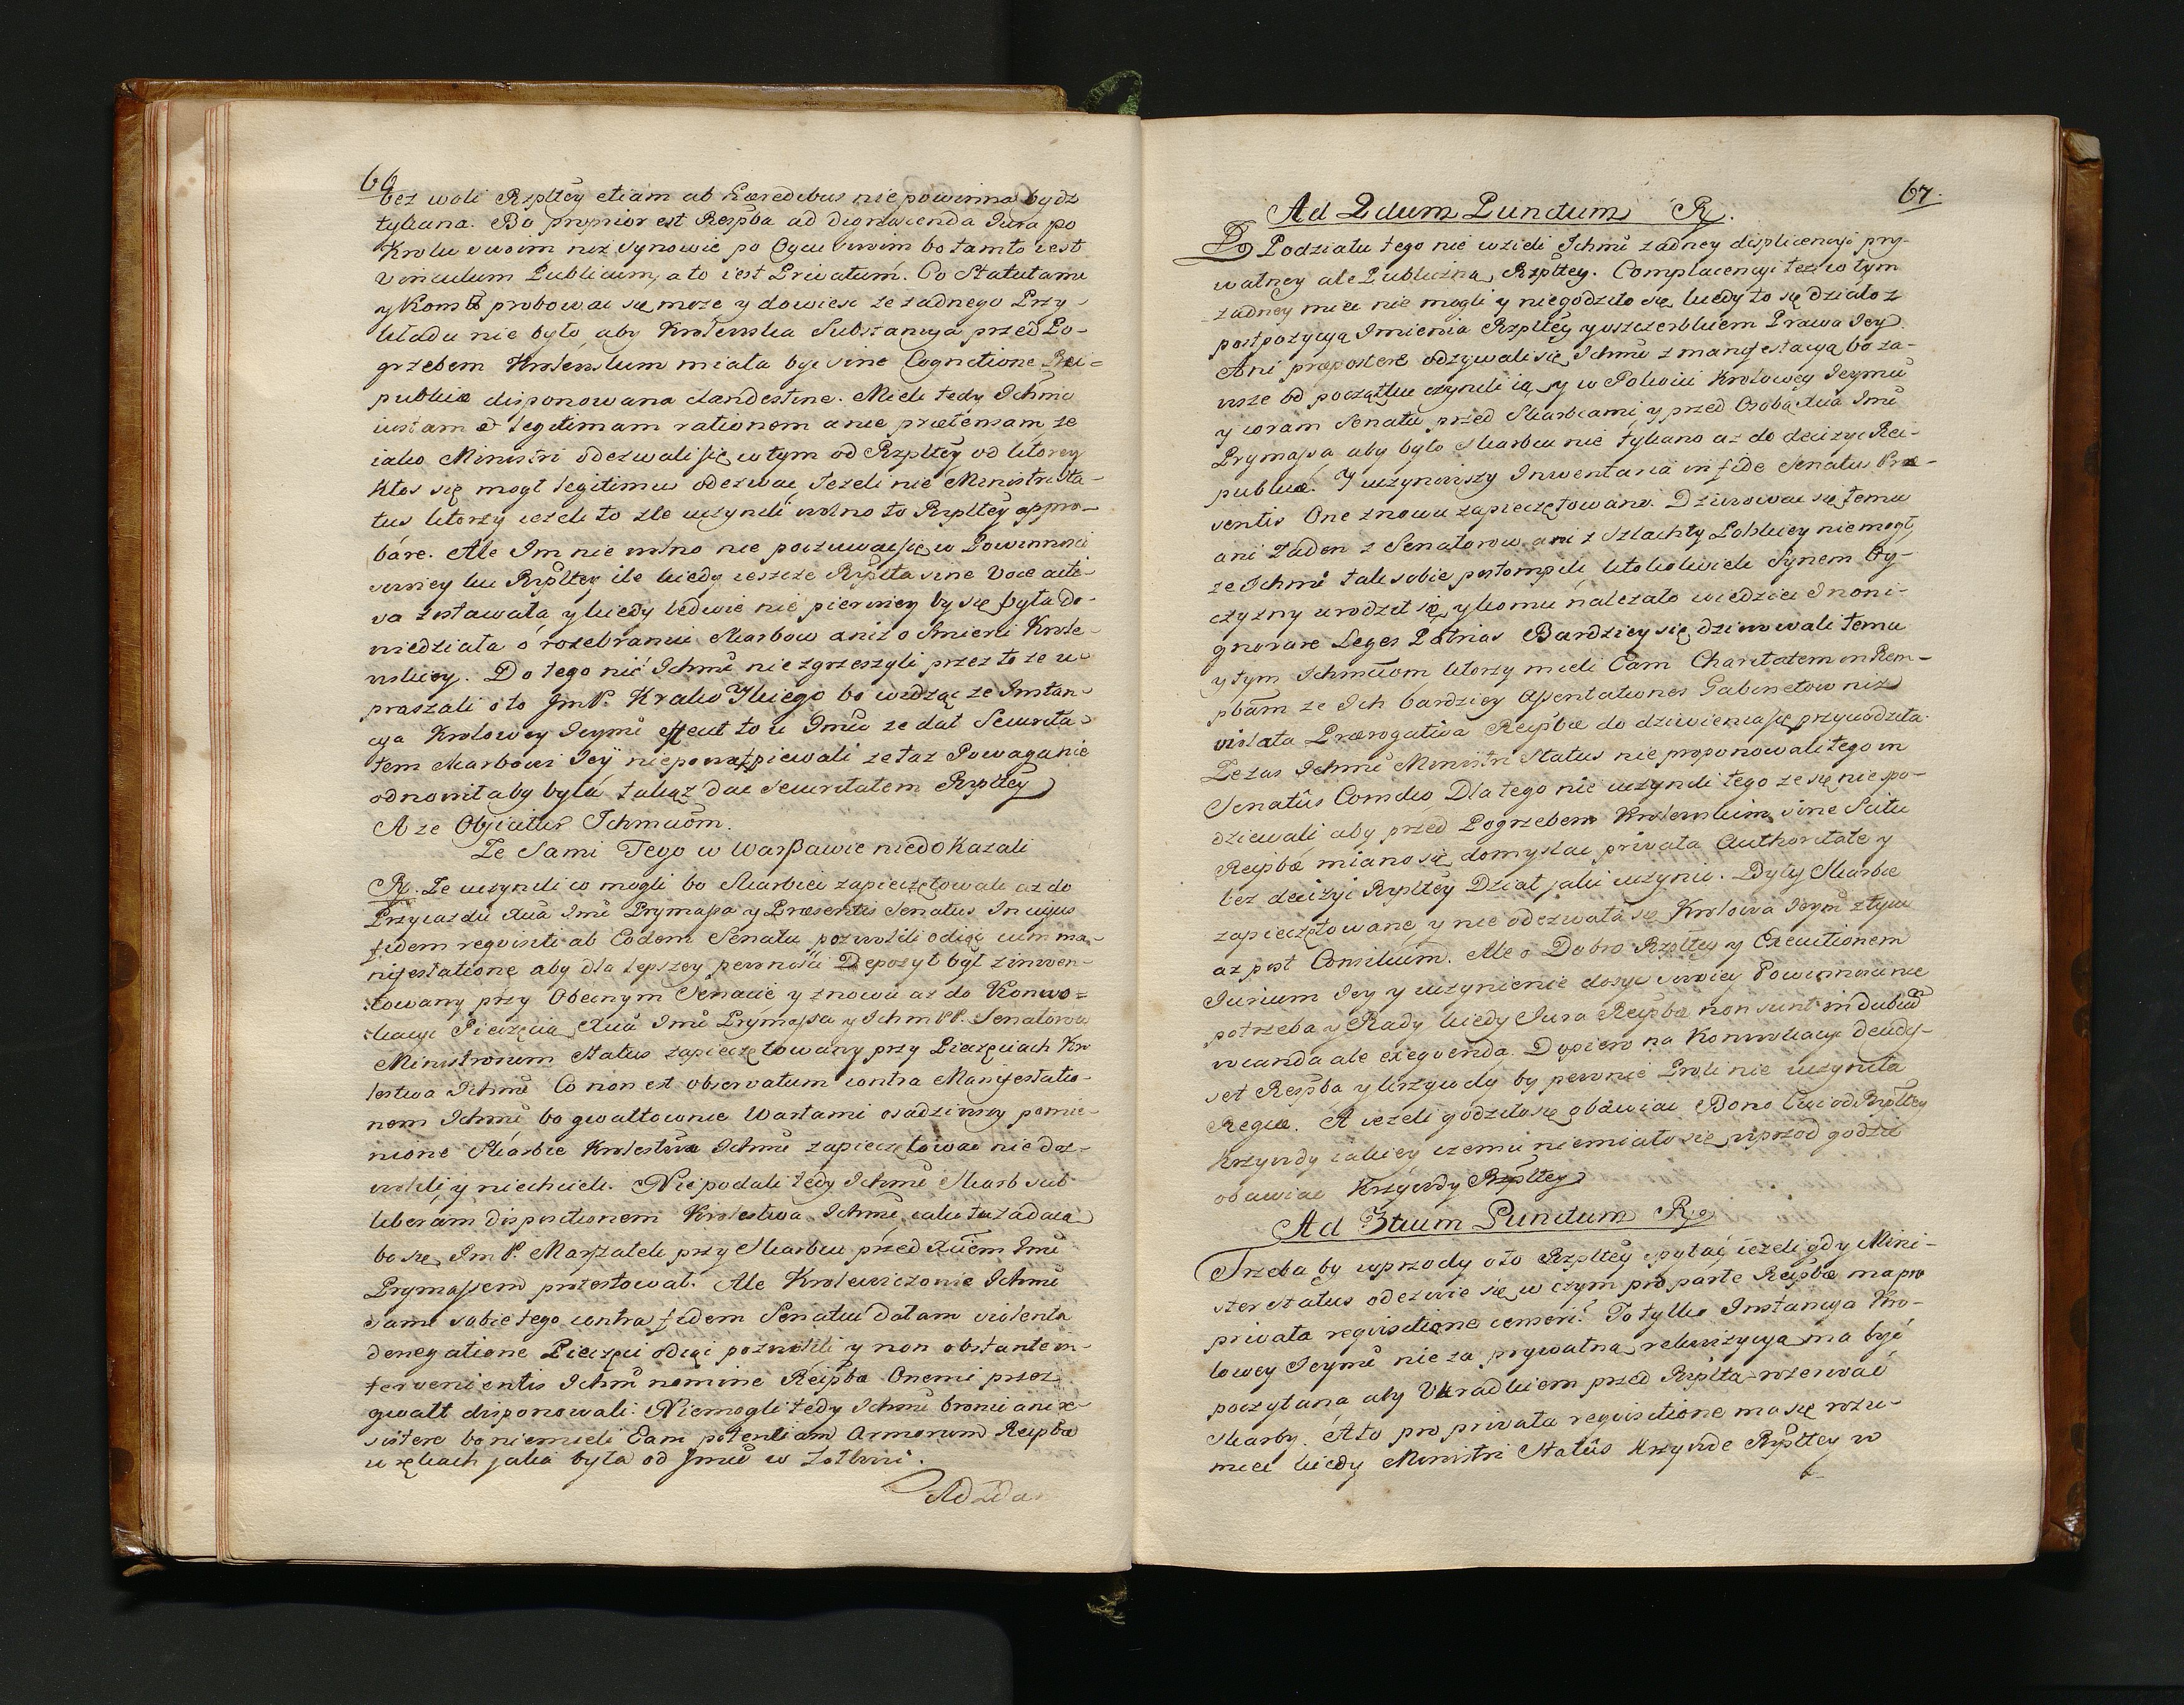 66
bez woli Rzpltey etiam ab Hæredibus nie powinna bydz
tykana. Bo proprior est Respba ad dignoscenda Jura po
Krolu swoim niz Synowie po Oycu swoim bo tamto iest
Vinculum Publicum, a to iest Privatum. Co Statutami
y Konst probowac się moze y dowiesc ze zadnego Przy-
kładu nie było, aby Krolewska Substancya przed Po-
grzebem Krolewskim miała byc sine Cognitione Rei-
publicæ disponowana clandestine. Mieli tedy Ichmc
iustam & legitimam rationem a nie prætensam, ze
iako Ministri odezwali się w tym od Rzpltey od ktorey
ktos się mogł legitimus odezwac Jezeli nie Ministri Sta-
tus ktorzy iezeli to zle uczynili wolno to Rzpltey appro-
bare. Ale Im nie wolno nie poczuwac się w Powinnosci
swoiey ku Rzpltey ile kiedy ieszcze Rzplta sine Voce acti-
va zostawała y kiedy ledwie nie pierwiey by się była do-
wiedziała o rozebraniu Skarbow aniz o Smierci Krole-
wskiey. Do tego nic Ichmc nie zgrzeszyli przez to ze u-
praszali o to Jm P. Krako Iskiego bo widząc ze Instan-
cya Krolowey Jeymc effecit to u Jmci ze dał Securita-
tem Skarbowi Jey niepowątpiewali ze taz Powaga nie
odnowiłaby była takąz dac Securitatem Rzpltey
A ze Objicitur Ichmciom.
Ze Sami Tego w Warszawie niedokazali
R. Ze uczynili co mogli bo Skarbiec zapieczętowali az do
Przyiazdu Xcia Jmci Prymasa y Præsentis Senatus In cujus
fidem requisiti ab Eodem Senatu pozwolili odiąc cum ma-
nifestatione aby dla lepszey pewności Depozyt był zinwen-
towany przy Obecnym Senacie y znowu az do Konwo-
kacyi Pieczęcią Xcia Jmci Prymasa y Ichm PP. Senatorow
Ministrorum Status zapieczętowany przy Pieczęciach Kro
lestwa Ichmc Co non est observatum contra Manifestatio-
nem Ichmc bo gwałtownie Wartami osadziwszy pomie-
nione Skarbce Krolestwa Ichmc zapieczętowac nie doz-
wolili y niechcieli. Nie podali tedy Ichmc Skarb sub
liberam dispositionem Krolestwa Ichmc iako tu zadaią
bo się Jm P. Marszałek przy Skarbcu przed Xciem Jmc
Prymasem protestował. Ale Krolewiczowie Ichmc
sami sobie tego contra fidem Senatui datam violenta
denegatione Pieczęci odiąc pozwolili y non obstante in-
tervenientis Ichmc nomine Reipbæ Onemi przez
gwałt disponowali: Niemogli tedy Ichmc bronic ani re-
sistere bo niemieli Eam potentiam Armorum Reipbæ
w rękach jaka była od Jmci w Zołkwi.
Ad 2du
67.
Ad 2dum Punctum R.
Do Podziału tego nie wzieli Ichmc zadney displicencyi pry-
watney ale Publiczną Rzpltey. Complacencyi tez w tym
zadney miec nie mogli y niegodziło się, kiedy to się działo z
postpozycyą Imienia Rzpltey y uszczerbkiem Prawa Jey.
Ani præpostere odzywali się Ichmc z manifestacyą bo za-
wsze od początku czynili ią y w Pokoiu Krolowey Jeymc
y coram Senatu przed Skarbcami y przed Osobą Xcia Jmc
Prymasa aby było Skarbcu nie tykano az do decizyi Rei-
publicæ. Y uczyniwszy Inwentaria in fide Senatus Præ-
sentis One znowu zapieczętowano. Dziwowac się temu
ani zaden z Senatorow ani z Szlachty Polskiey niemogł,
ze Ichmc tak sobie postompili ktokolwiek Synem Oy-
czyzny urodził się y komu należało wiedziec Inoni-
gnorare Leges Patrias Bardziey się dziwowali temu
y tym Ichmciom ktorzy mieli Eam Charitatem in Rem-
pbam ze Ich bardziey Assentationes Gabinetow niz
violata Prærogativa Reipbæ do dziwienia się przywodziła
Ze zas Ichmc Ministri Status nie proponowali tego in
Senatûs Consilio Dla tego nie uczynili tego ze się nie spo-
dziewali aby przed Pogrzebem Krolewskim sine Scitu
Reipbæ miano się domyslac privata Authoritate y
bez decizyi Rzpltey Dział jaki uczynic. Były Skarbce
zapieczętowane y nie odezwała się Krolowa Jeymc z tym
az post Consilium. Ale o Dobro Rzpltey y Executionem
Jurium Jey y uczynienie dosyc swoiey Powinnosci nie
potrzeba y Rady kiedy Jura Reipbæ non sunt in dubium
vocanda ale exequenda. Dopiero na Konwokacyi decidis-
set Respba y krzywdy by pewnie Proli nie uczyniła
Regiæ. A iezeli godziło się obawiac Bono Civi od Rzpltey
krzywdy iakiey czemu niemiało się wprzod godzic
obawiac Krzywdy Rzpltey
Ad 3tium Punctum R.
Trzeba by wprzody oto Rzpltey spytac iezeli gdy Mini-
ster Status odezwie się w czym pro parte Reipbæ ma pro
privata requisitione censeri? To tylko Instancya Kro-
lowey Jeymc nie za prywatną rekwizycyą ma być
poczytana aby Ukradkiem przed Rzplta rozerwać
Skarby. A to pro privata requisitione ma się rozu-
miec kiedy Ministri Statûs Krzywde Rzpltey w